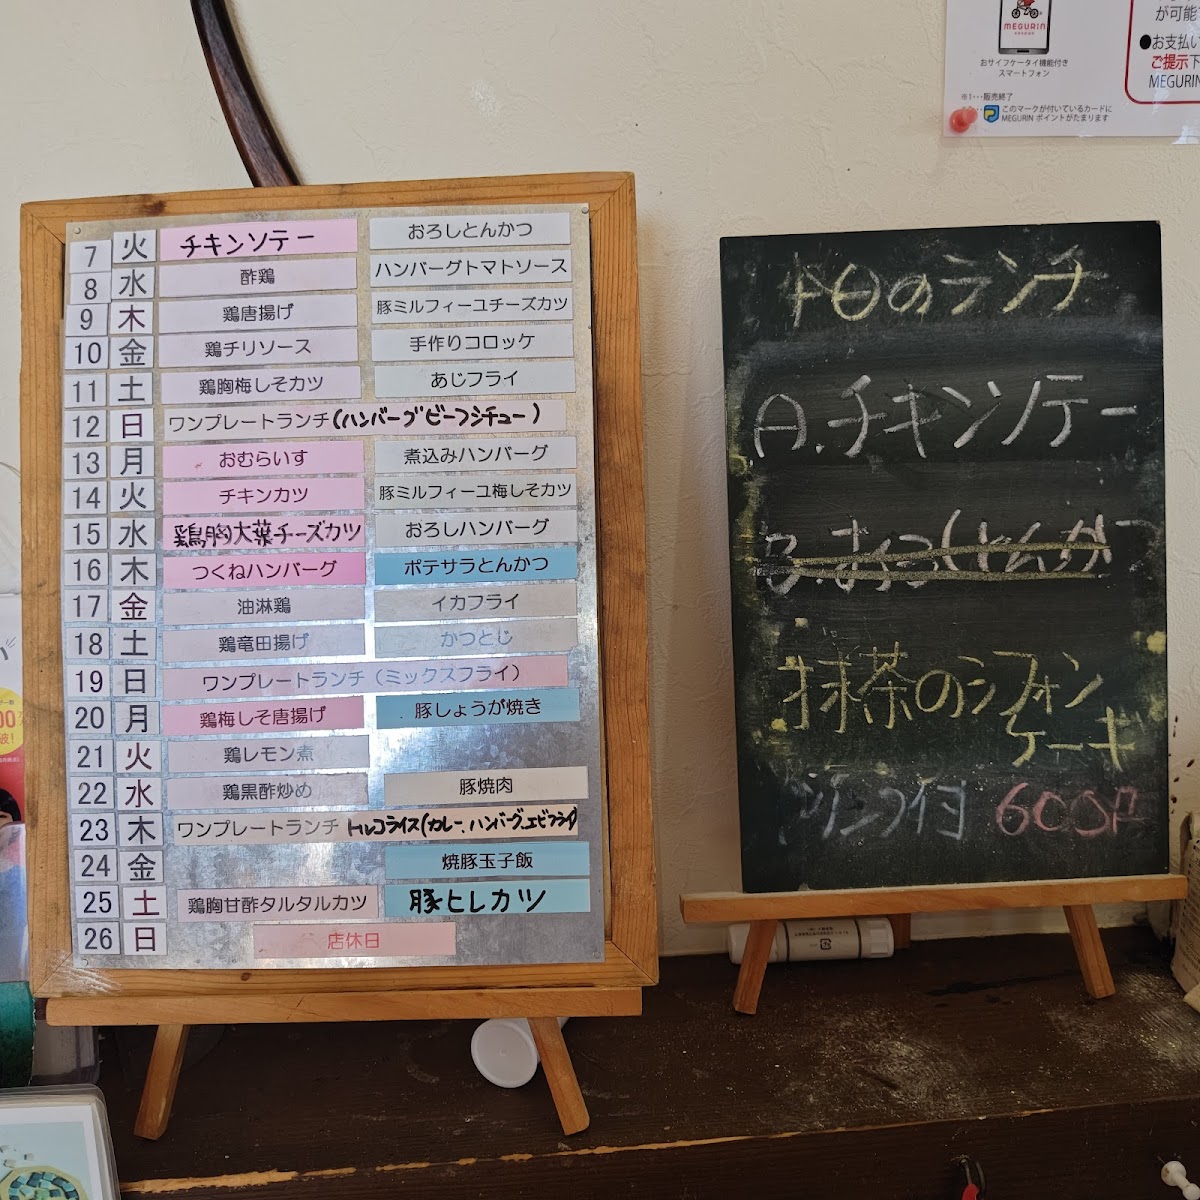 7 火 チキンソテー おろしとんかつ
8 水 酢鶏 ハンバーグトマトソース
9 木 鶏唐揚げ 豚ミルフィーユチーズカツ
10 金 鶏チリソース 手作りコロッケ
11 土 鶏胸梅しそカツ あじフライ
12 日 ワンプレートランチ(ハンバーグビーフシチュー)
13 月 おむらいす 煮込みハンバーグ
14 火 チキンカツ 豚ミルフィーユ梅しそカツ
15 水 鶏胸大葉チーズカツ おろしハンバーグ
16 木 つくねハンバーグ ポテサラとんかつ
17 金 油淋鶏 イカフライ
18 土 鶏竜田揚げ かつとじ
19 日 ワンプレートランチ(ミックスフライ)
20 月 鶏梅しそ唐揚げ 豚しょうが焼き
21 火 鶏レモン煮
22 水 鶏黒酢炒め 豚焼肉
23 木 ワンプレートランチ トルコライス(カレー、ハンバーグ、エビフライ)
24 金 焼豚玉子飯
25 土 鶏胸甘酢タルタルカツ 豚ヒレカツ
26 日 店休日
今日のランチ
A.チキンソテー
B.おろしとんかつ
抹茶のシフォン
ケーキ
ドリンク付 600円
MEGURIN
おサイフケータイ機能付き
スマートフォン
※1・・・販売終了
このマークが付いているカードに
MEGURIN ポイントがたまります
が可能
●お支払い
ご提示下
MEGURIN